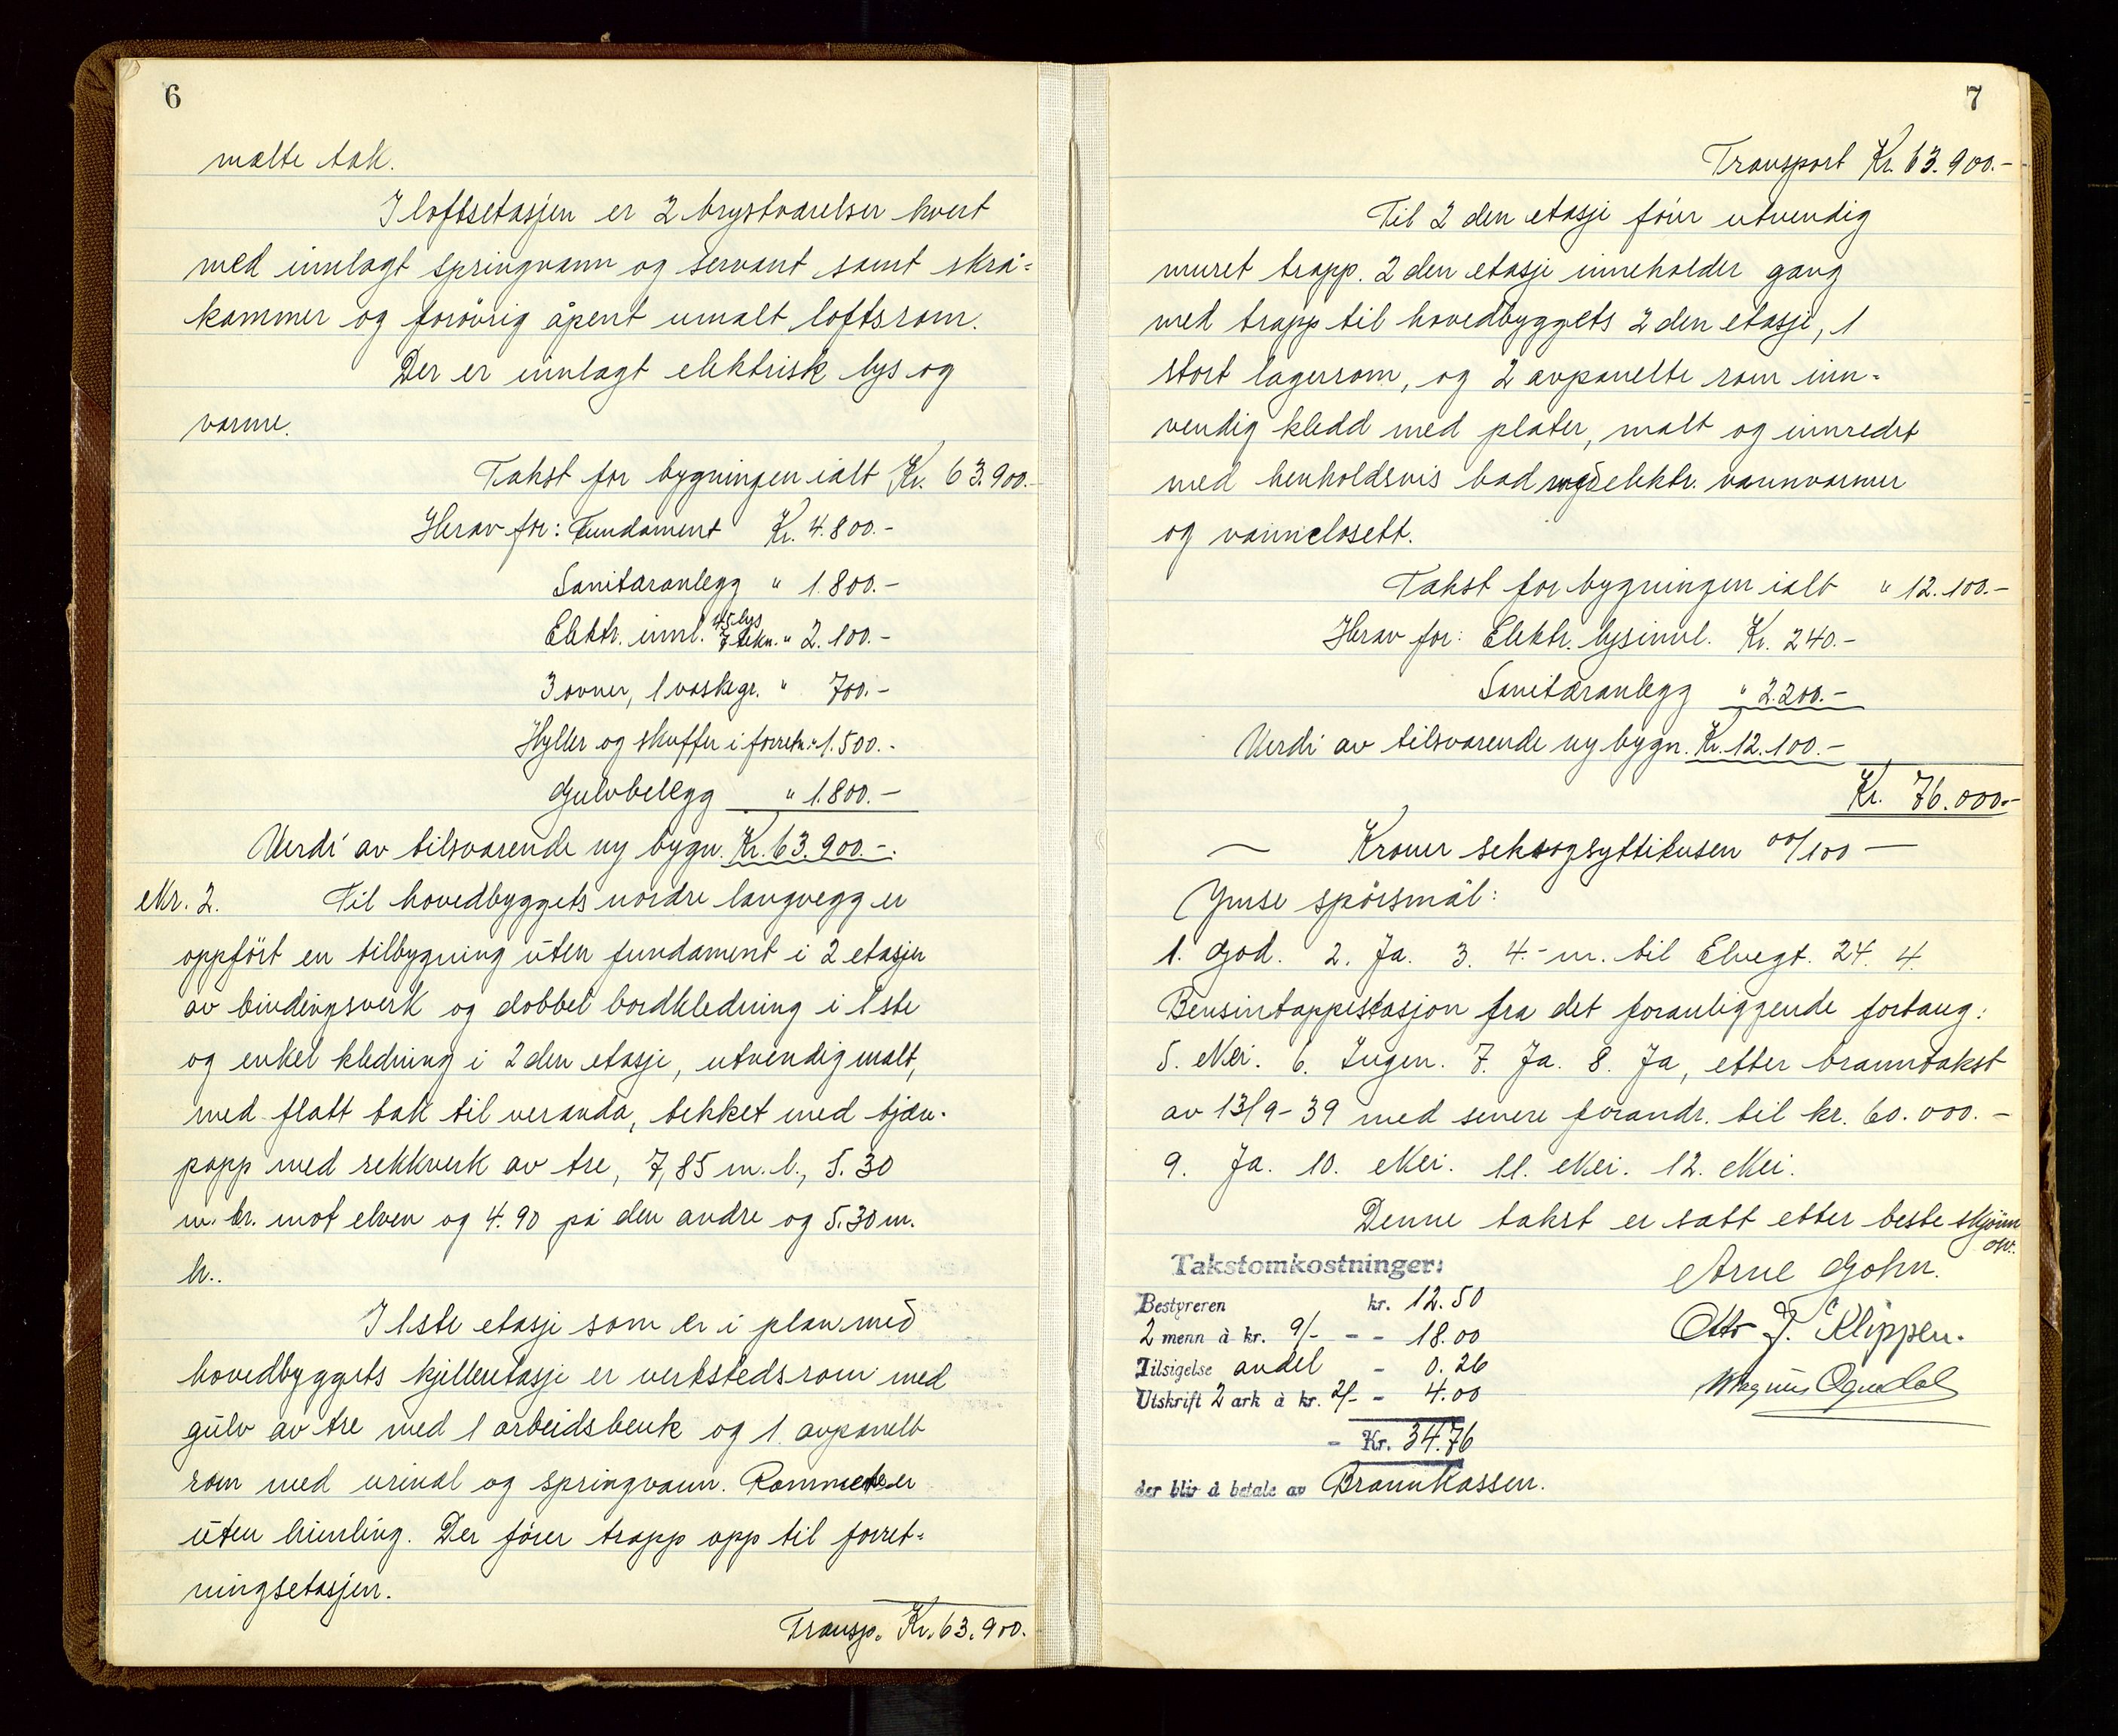 6
malte tak.
I loftsetasjen er 2 brystværelser hvert
med innlagt springvann og servant samt skrå-
kammer og forøvrig åpent umalt loftsrom.
Der er innlagt elektrisk lys og
varme.
Takst for bygningen ialt Kr. 63.900.-
Herav for: Fundament Kr. 4.800.-
Sanitæranlegg " 1.800.-
Elektr. innl. 45 lys 7 tekn. " 2.100.-
3 ovner, 1 vaskegr. " 700.-
Hyller og skuffer i forretn. " 1.500.-
Gulvbelegg " 1.800.-
Verdi av tilsvarende ny bygn. Kr. 63.900.-.
Nr. 2. Til hovedbyggets nordre langvegg er
oppført en tilbygning uten fundament i 2 etasjer
av bindingsverk og dobbel bordkledning i 1ste
og enkel kledning i 2den etasje, utvendig malt,
med flatt tak til veranda, tekket med tjære-
papp med rekkverk av tre, 7,85 m. l., 5.30
m. br. mot elven og 4.90 på den andre og 5.30 m.
h..
I 1ste etasje som er i plan med
hovedbyggets kjelleretasje er verkstedsrom med
gulv av tre med 1 arbeidsbenk og 1 avpanelt
rom med urinal og springvann. Rommene er
uten himling. Der fører trapp opp til forret-
ningsetasjen.
Transp. Kr. 63.900.
7
Transport Kr. 63.900.-
Til 2den etasje fører utvendig
muret trapp. 2den etasje inneholder gang
med trapp til hovedbyggets 2den etasje, 1
stort lagerrom, og 2 avpanelte rom inn-
vendig kledd med plater, malt og innredet
med henholdsvis bad med elektr. vannvarmer
og vannclosett.
Takst for bygningen ialt " 12.100.-
Herav for: Elektr. lysinnl. Kr. 240.-
Sanitæranlegg " 2.200.-
Verdi av tilsvarende ny bygn. Kr. 12.100.-
Kr. 76.000.-
— Kroner seksogsyttitusen 00/100 —
Ymse spørsmål:
1. God. 2. Ja. 3. 4.- m. til Elvegt. 24. 4.
Bensintappestasjon fra det foranliggende fortaug:
5. Nei. 6. Ingen. 7. Ja. 8. Ja, etter branntakst
av 13/9-39 med senere forandr. til kr. 60.000.-
9. Ja. 10. Nei. 11. Nei. 12. Nei.
Denne takst er satt etter beste skjønn
ov.
Takstomkostninger:
Bestyreren kr. 12.50
2 menn à kr. 9/- - - 18.00
Tilsigelse andel - 0.26
Utskrift 2 ark à kr. 2/- - 4.00
- Kr. 34.76
der blir å betale av Brannkassen.
Arne Gohn.
Otto J. Klippen.
Magnus Ognedal